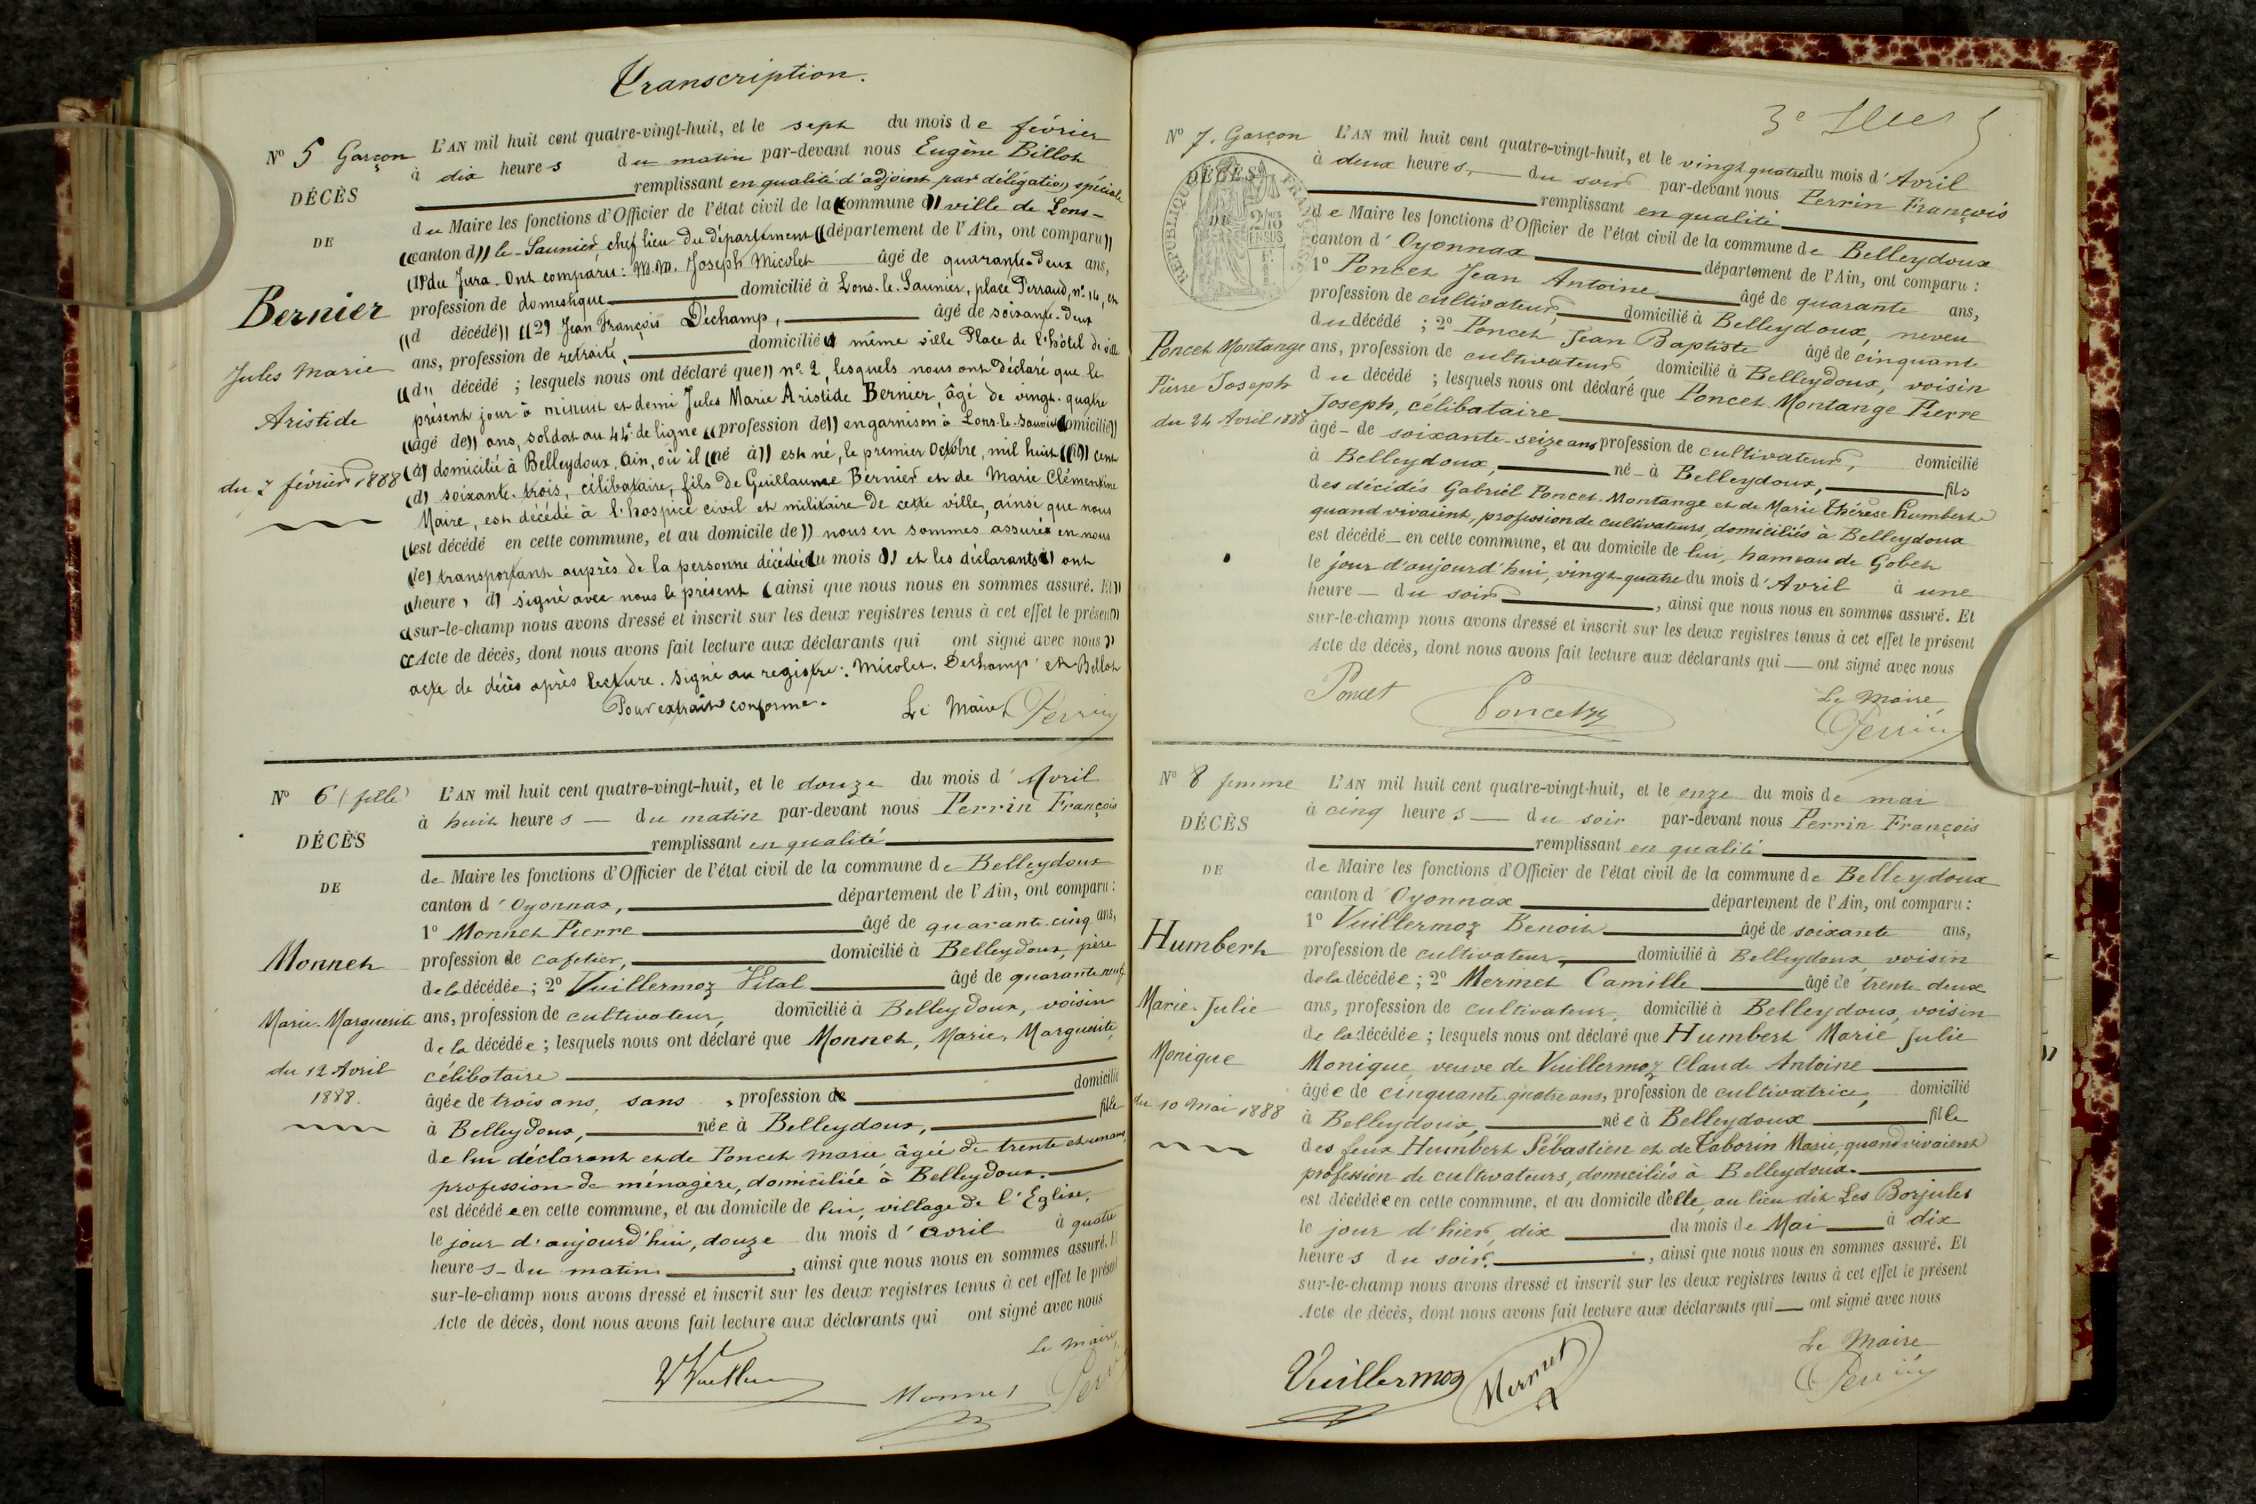 Transcription.
N° 5 Garçon
DÉCÈS
DE
Bernier
Jules Marie
Aristide
du 7 février 1888
L'AN mil huit cent quatre-vingt-huit, et le sept du mois de février
à dix heures du matin par-devant nous Eugène Billot
remplissant en qualité d'adjoint par délégation spéciale
du Maire les fonctions d'Officier de l'état civil de la (commune d)) ville de Lons-
((canton d)) le-Saunier, chef lieu du département ((département de l'Ain, ont comparu))
((1° du Jura. Ont comparu: M.M. Joseph Micolet âgé de quarante-deux ans,
profession de domestique domicilié à Lons-le-Saunier, place Perraud, n° 14, et
((d décédé)) ((2)) Jean François Dechamp, âgé de soixante-deux
ans, profession de retraité, domicilié même ville Place de l'hôtel de ville
((d)) décédé ; lesquels nous ont déclaré que)) n° 2, lesquels nous ont déclaré que le
présent jour à minuit et demi Jules Marie Aristide Bernier, âgé de vingt-quatre
((âgé de)) ans, soldat au 44e de ligne ((profession de)) en garnison à Lons-le-Saunier (domicilié))
(à) domicilié à Belleydoux, Ain, où il ((né à)) est né, le premier Octobre, mil huit ((fil)) cent
(d) soixante-trois, célibataire, fils de Guillaume Bernier et de Marie Clémentine
Maire, est décédé à l'hospice civil et militaire de cette ville, ainsi que nous
((est décédé en cette commune, et au domicile de)) nous en sommes assurés en nous
(le) transportant auprès de la personne décédée (du mois d)) et les déclarants (à) ont
((heure, d) signé avec nous le présent (ainsi que nous nous en sommes assuré. Et))
((sur-le-champ nous avons dressé et inscrit sur les deux registres tenus à cet effet le présent))
((Acte de décès, dont nous avons fait lecture aux déclarants qui ont signé avec nous))
acte de décès après lecture. Signé au registre: Micolet. Dechamp et Billot
Pour extrait conforme.
Le Maire Perrin
N° 6 (fille)
DÉCÈS
DE
Monnet
Marie-Marguerite
du 12 Avril
1888.
L'AN mil huit cent quatre-vingt-huit, et le douze du mois d'Avril
à huit heures du matin par-devant nous Perrin François
remplissant en qualité
de Maire les fonctions d'Officier de l'état civil de la commune de Belleydoux
canton d'Oyonnax, département de l'Ain, ont comparu :
1° Monnet Pierre âgé de quarante-cinq ans,
profession de cafetier, domicilié à Belleydoux, père
de la décédée ; 2° Vuillermoz Vital âgé de quarante neuf
ans, profession de cultivateur, domicilié à Belleydoux, voisin
de la décédée ; lesquels nous ont déclaré que Monnet, Marie, Marguerite,
célibataire
âgée de trois ans, sans profession de domicilié
à Belleydoux, née à Belleydoux, fille
de lui déclarant et de Poncet Marie, âgée de trente et un ans,
profession de ménagère, domiciliée à Belleydoux.
est décédée en cette commune, et au domicile de lui, village de l'Eglise,
le jour d'aujourd'hui, douze du mois d'avril à quatre
heures du matin, ainsi que nous nous en sommes assuré. Et
sur-le-champ nous avons dressé et inscrit sur les deux registres tenus à cet effet le présent
Acte de décès, dont nous avons fait lecture aux déclarants qui ont signé avec nous
Le Maire
Monnet
3e
N° 7. Garçon
DÉCÈS
DE
RÉPUBLIQUE FRANÇAISE
2/10
EN SUS
Poncet Montange
Pierre Joseph
du 24 Avril 1888
L'AN mil huit cent quatre-vingt-huit, et le vingt quatre du mois d'Avril
à deux heures, du soir par-devant nous Perrin François
remplissant en qualité
de Maire les fonctions d'Officier de l'état civil de la commune de Belleydoux
canton d'Oyonnax département de l'Ain, ont comparu :
1° Poncet Jean Antoine âgé de quarante ans,
profession de cultivateur, domicilié à Belleydoux, neveu
du décédé ; 2° Poncet Jean Baptiste âgé de cinquante
ans, profession de cultivateur domicilié à Belleydoux, voisin
du décédé ; lesquels nous ont déclaré que Poncet Montange Pierre
Joseph, célibataire
âgé de soixante-seize ans profession de cultivateur, domicilié
à Belleydoux, né à Belleydoux, fils
des décédés Gabriel Poncet-Montange et de Marie Thérèse Humbert
quand vivaient, profession de cultivateurs, domiciliés à Belleydoux
est décédé en cette commune, et au domicile de lui, hameau de Gobet
le jour d'aujourd'hui, vingt-quatre du mois d'Avril à une
heure du soir, ainsi que nous nous en sommes assuré. Et
sur-le-champ nous avons dressé et inscrit sur les deux registres tenus à cet effet le présent
Acte de décès, dont nous avons fait lecture aux déclarants qui ont signé avec nous
Poncet Poncet
Le Maire,
Perrin
N° 8 femme
DÉCÈS
DE
Humbert
Marie-Julie
Monique
du 10 Mai 1888
L'AN mil huit cent quatre-vingt-huit, et le onze du mois de mai
à cinq heures du soir par-devant nous Perrin François
remplissant en qualité
de Maire les fonctions d'Officier de l'état civil de la commune de Belleydoux
canton d'Oyonnax département de l'Ain, ont comparu :
1° Vuillermoz Benoit âgé de soixante ans,
profession de cultivateur, domicilié à Belleydoux voisin
de la décédée ; 2° Mermet Camille âgé de trente deux
ans, profession de cultivateur, domicilié à Belleydoux, voisin
de la décédée ; lesquels nous ont déclaré que Humbert Marie Julie
Monique, veuve de Vuillermoz Claude Antoine
âgée de cinquante quatre ans, profession de cultivatrice, domicilié
à Belleydoux, née à Belleydoux fille
des feux Humbert Sébastien et de Taborin Marie, quand vivaient
profession de cultivateurs, domiciliés à Belleydoux.
est décédée en cette commune, et au domicile d'elle, au lieu dit Les Borjules
le jour d'hier, dix du mois de Mai à dix
heures du soir., ainsi que nous nous en sommes assuré. Et
sur-le-champ nous avons dressé et inscrit sur les deux registres tenus à cet effet le présent
Acte de décès, dont nous avons fait lecture aux déclarants qui ont signé avec nous
Le Maire
Vuillermoz Mermet Perrin